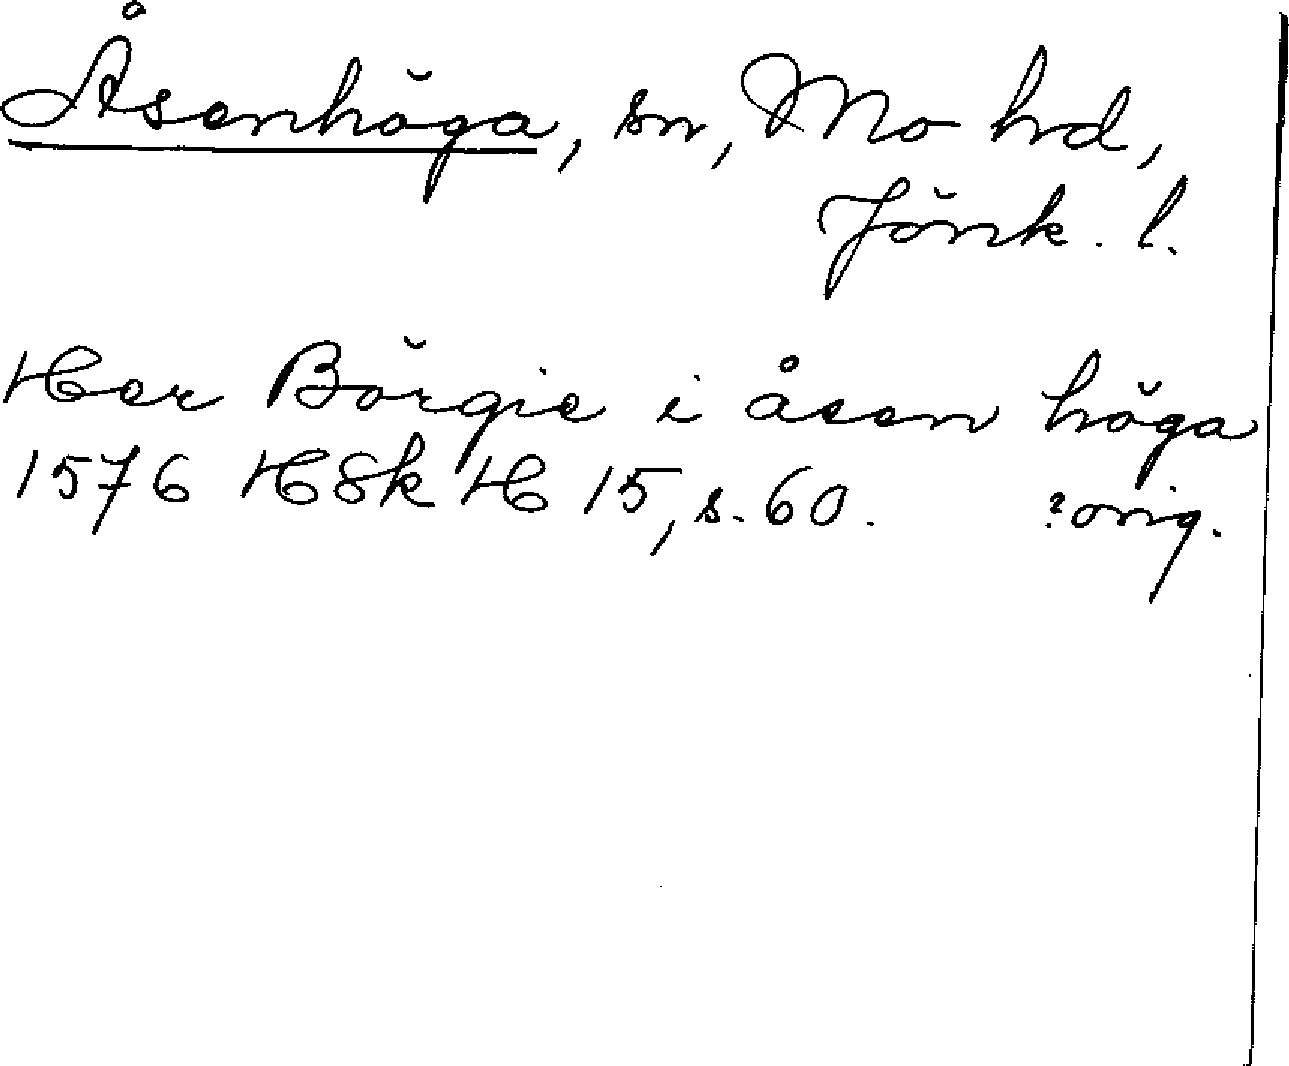 Åsenhöga, sn, Mo hd,
Jönk. l.
Her Börgie i åsen höga
1576 HSkH 15, s. 60. ?orig.